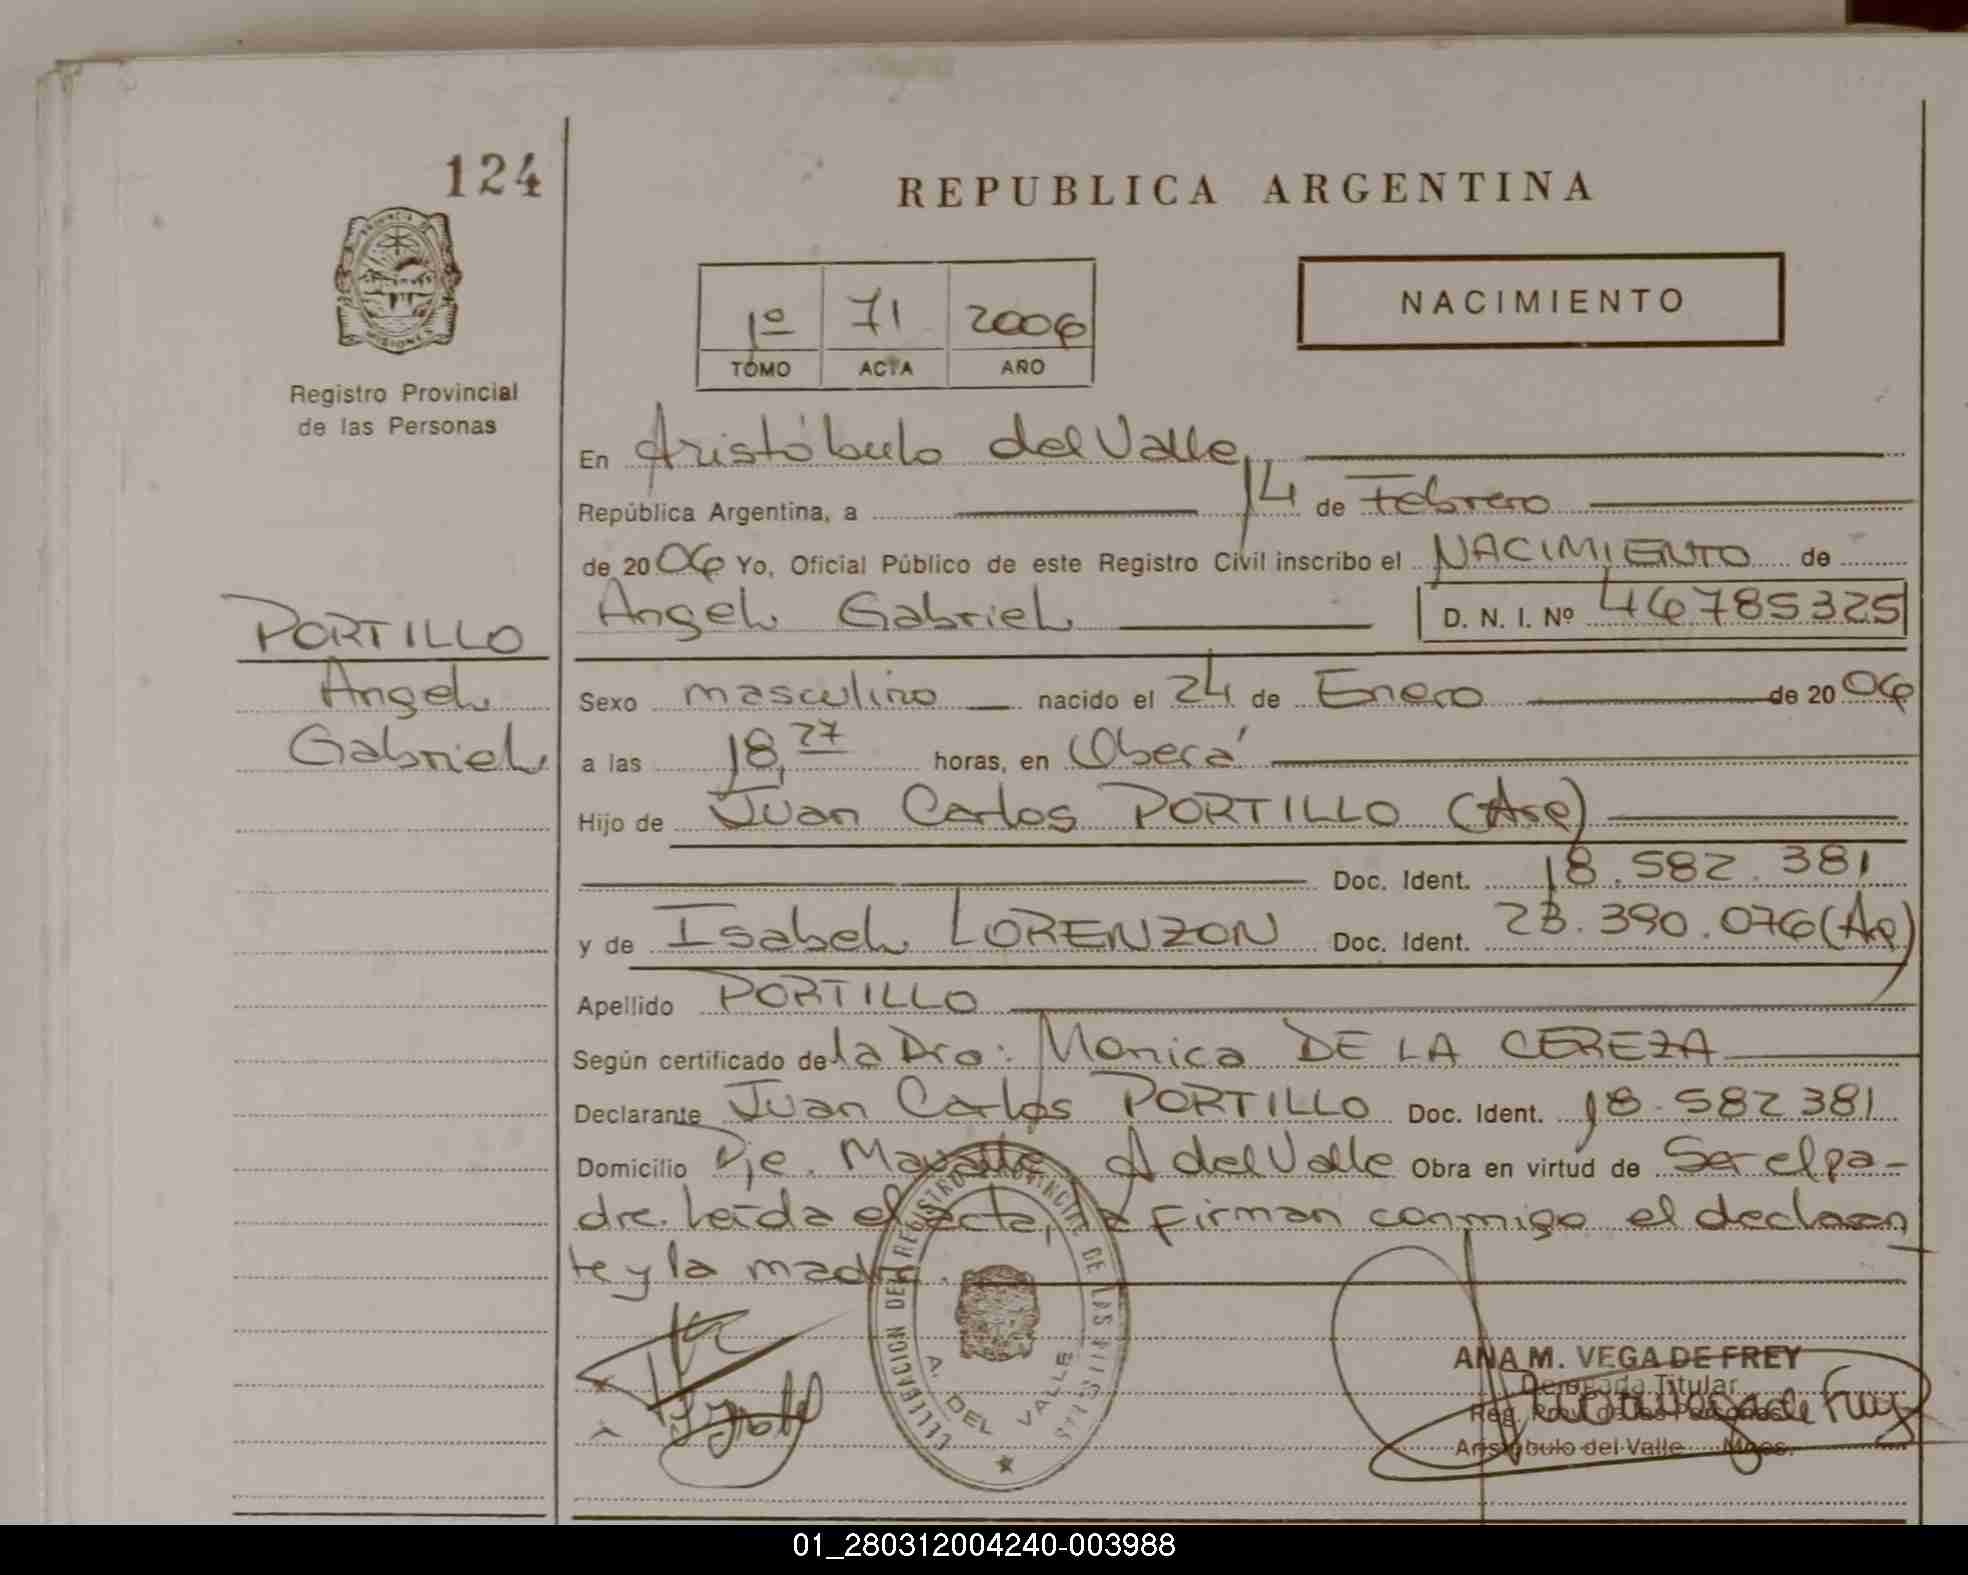 124
REPUBLICA ARGENTINA
1º 71 2006
TOMO ACTA AÑO
NACIMIENTO
Registro Provincial
de las Personas
En Aristóbulo del Valle
República Argentina, a 14 de Febrero
de 2006 Yo, Oficial Público de este Registro Civil inscribo el NACIMIENTO de
Angel Gabriel D. N. I. Nº 46785325
PORTILLO
Angel
Gabriel
Sexo masculino nacido el 24 de Enero de 2006
a las 18,27 horas, en Oberá
Hijo de Juan Carlos PORTILLO (Arg)
Doc. Ident. 18.582.381
y de Isabel LORENZON Doc. Ident. 23.390.076 (Ag)
Apellido PORTILLO
Según certificado de la Dra: Monica DE LA CEREZA
Declarante Juan Carlos PORTILLO Doc. Ident. 18.582 381
Domicilio Pje. A del Valle Obra en virtud de Ser el pa-
dre. Leída el acta, la firman conmigo el declaran
te y la madre.
DELEGACION DEL REGISTRO PROVINCIAL DE LAS PERSONAS
A. DEL VALLE
ANA M. VEGA DE FREY
Delegada Titular
Reg. Prov. de las Personas
Aristóbulo del Valle Mnes.
01_280312004240-003988